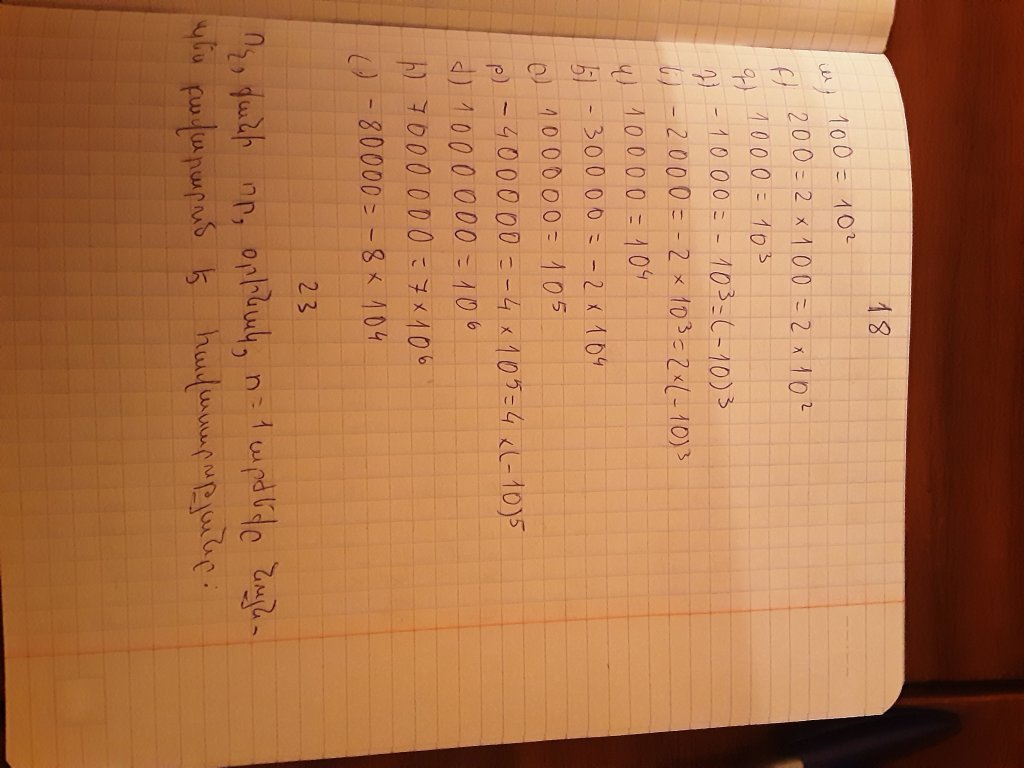 18
ա) 100 = 10²
բ) 200 = 2 × 100 = 2 × 10²
գ) 1000 = 10³
դ) - 1000 = - 10³ = (-10)³
ե) - 2000 = - 2 × 10³ = 2 × (-10)³
զ) 10000 = 10⁴
է) - 30000 = - 2 × 10⁴
ը) 100000 = 10⁵
թ) - 400000 = - 4 × 10⁵ = 4 × (-10)⁵
ժ) 1000000 = 10⁶
ի) 7000000 = 7 × 10⁶
լ) - 80000 = - 8 × 10⁴
23
Ոչ, քանի որ, օրինակ, n = 1 արժեքը նույն-
պես բավարարում է հավասարությանը: